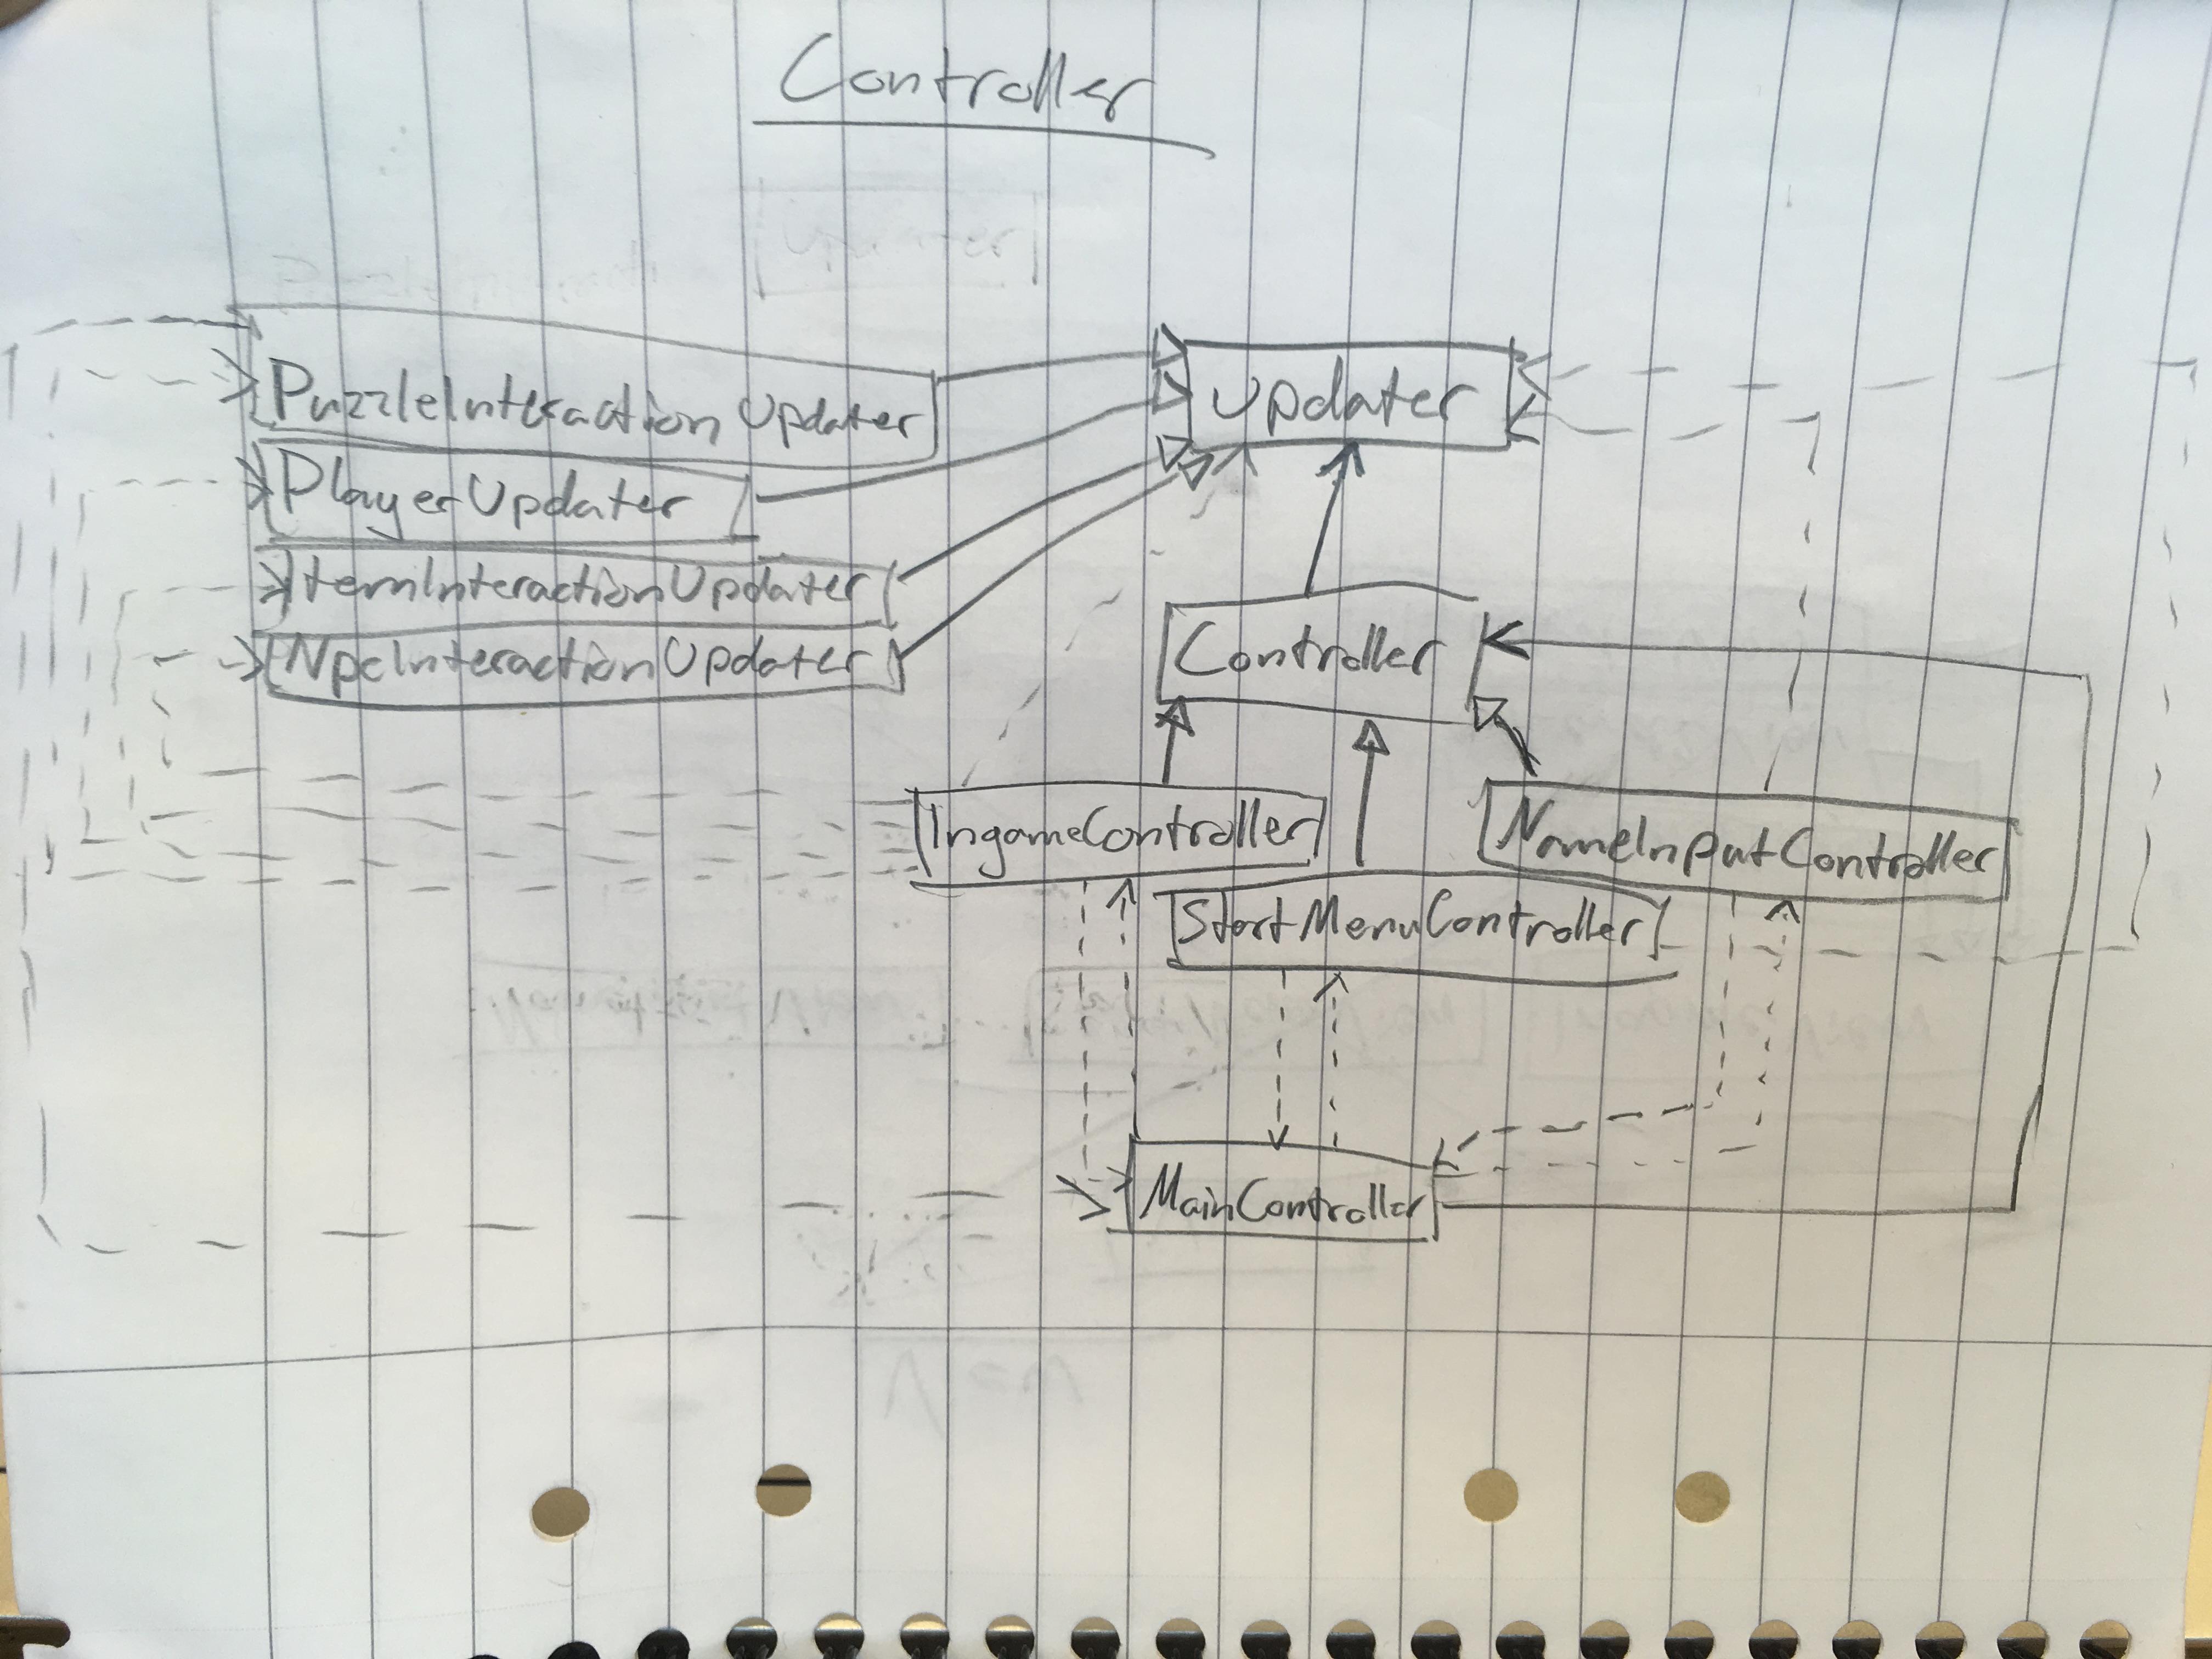 Controller
PuzzleInteractionUpdater
Updater
PlayerUpdater
ItemInteractionUpdater
NpcInteractionUpdater
Controller
IngameController
NameInputController
StartMenuController
MainController